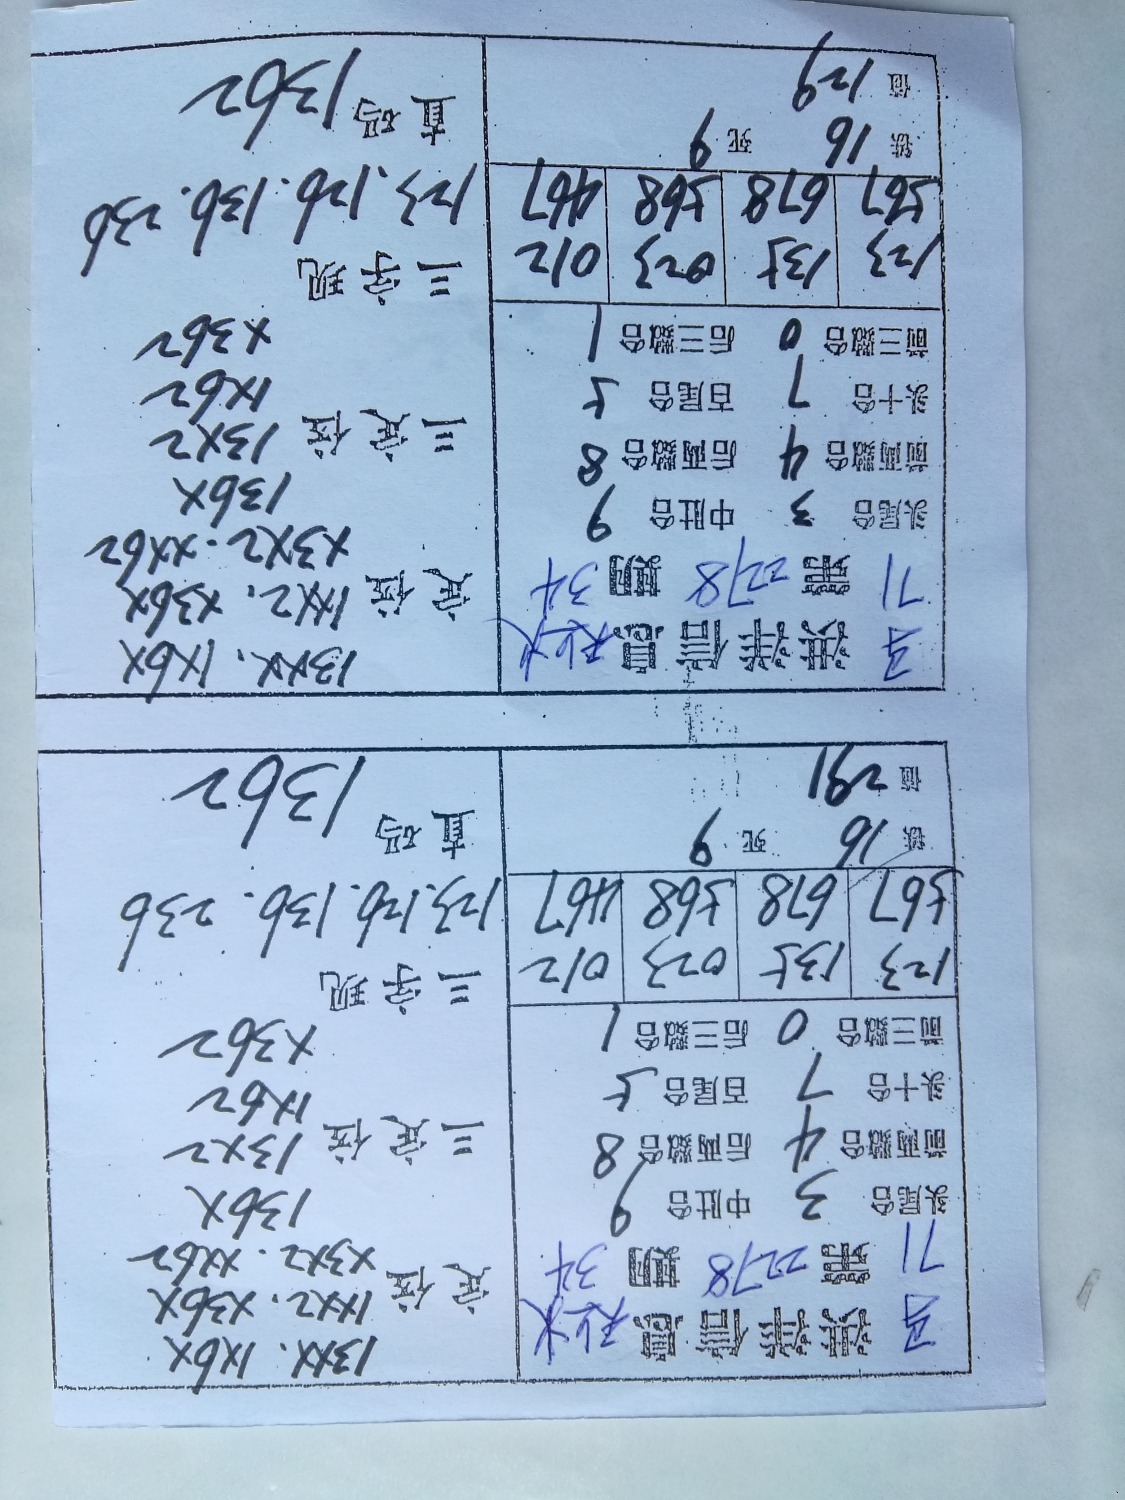 洪祥信息
71 第2278期 34
头尾合 3 中肚合 9
前两数合 4 后两数合 8
头十合 7 百尾合 5
前三数合 0 后三数合 1
123 135 023 012
567 678 568 467
铁 16 死 9
值 291
13XX. 1X6X
定位 1XX2. X36X
X3X2. XX62
136X
三定位 13X2
1X62
X362
三字现
123.126.136.236
直码 1362
洪祥信息
71 第2278期 34
头尾合 3 中肚合 9
前两数合 4 后两数合 8
头十合 7 百尾合 5
前三数合 0 后三数合 1
123 135 023 012
567 678 568 467
铁 16 死 9
值 129
13XX. 1X6X
定位 1XX2. X36X
X3X2. XX62
136X
三定位 13X2
1X62
X362
三字现
123.126.136.236
直码 1362